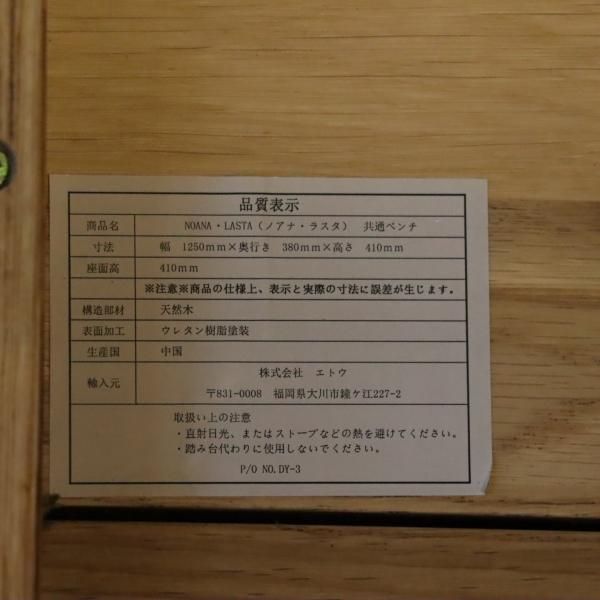 品質表示
商品名 NOANA・LASTA（ノアナ・ラスタ） 共通ベンチ
寸法 幅 1250mm×奥行き 380mm×高さ 410mm
座面高 410mm
※注意※商品の仕様上、表示と実際の寸法に誤差が生じます。
構造部材 天然木
表面加工 ウレタン樹脂塗装
生産国 中国
輸入元 株式会社 エトウ
〒831-0008 福岡県大川市鐘ケ江227-2
取扱い上の注意
・直射日光、またはストーブなどの熱を避けてください。
・踏み台代わりに使用しないでください。
P/O NO.DY-3